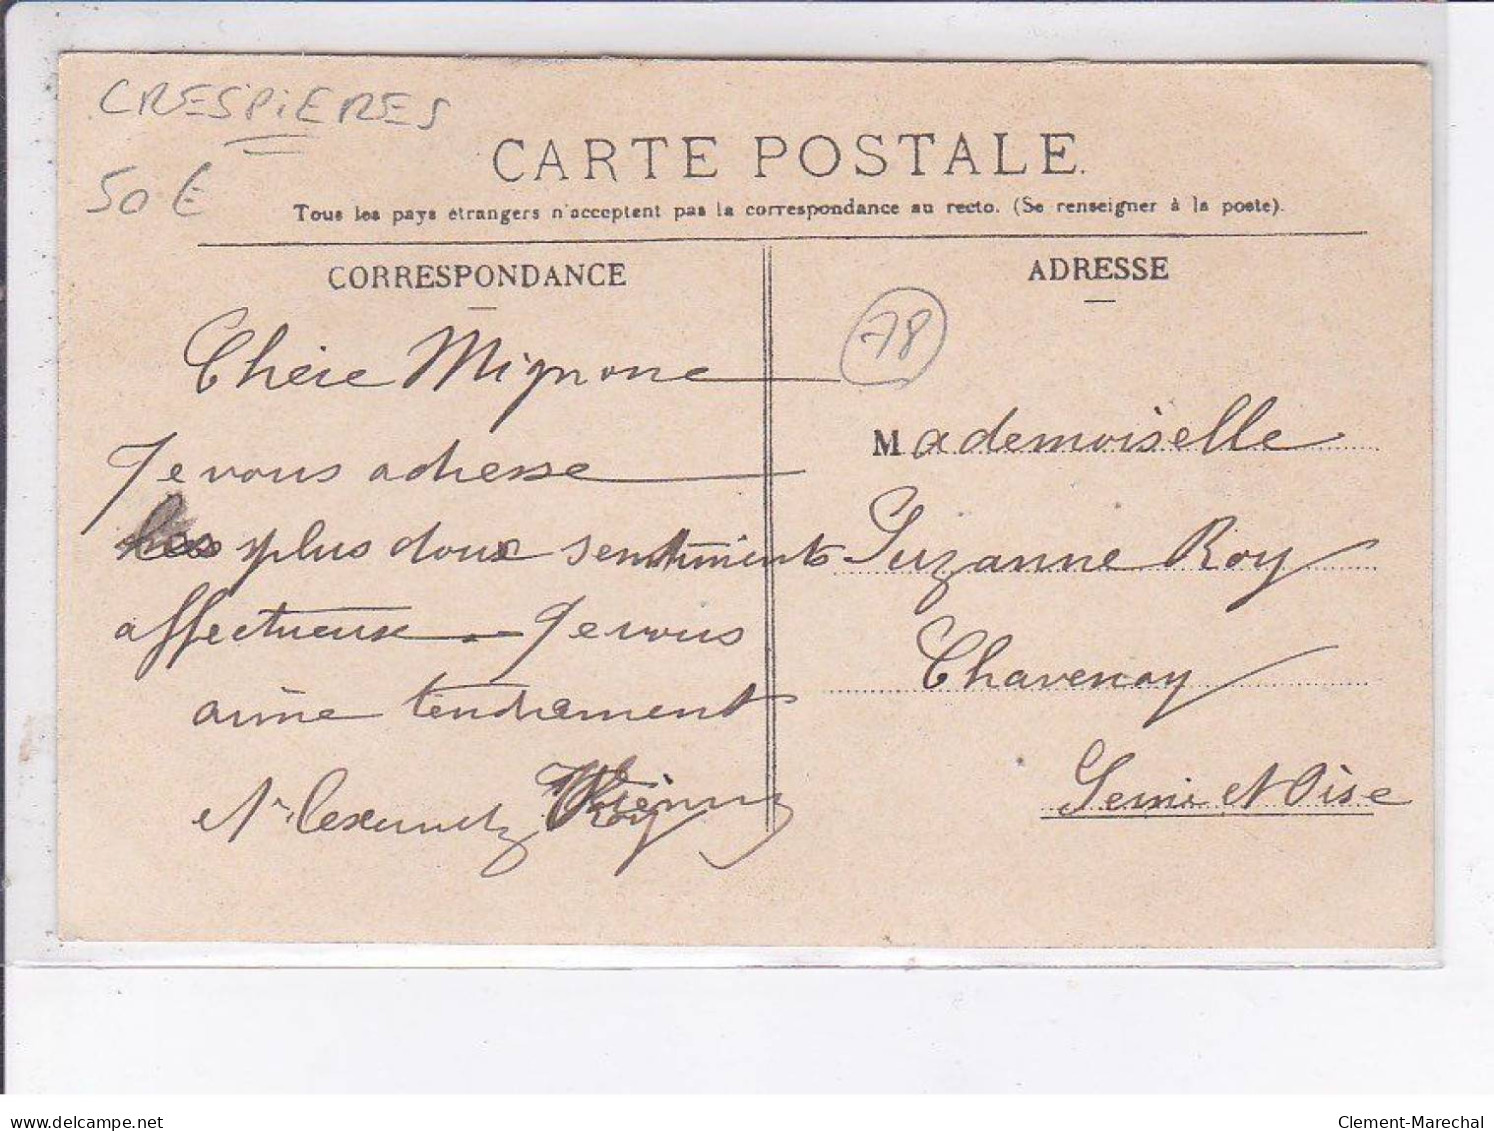 CRESPIERES
50 €
CARTE POSTALE.
Tous les pays étrangers n'acceptent pas la correspondance au recto. (Se renseigner à la poste).
CORRESPONDANCE
Chère Mignone
Je vous adresse
les plus doux sentiments
affectueux. Je vous
aime tendrement
ADRESSE
78
Mademoiselle
Suzanne Roy
Chavenay
Seine et Oise
delcampe.net
Clement-Marechal